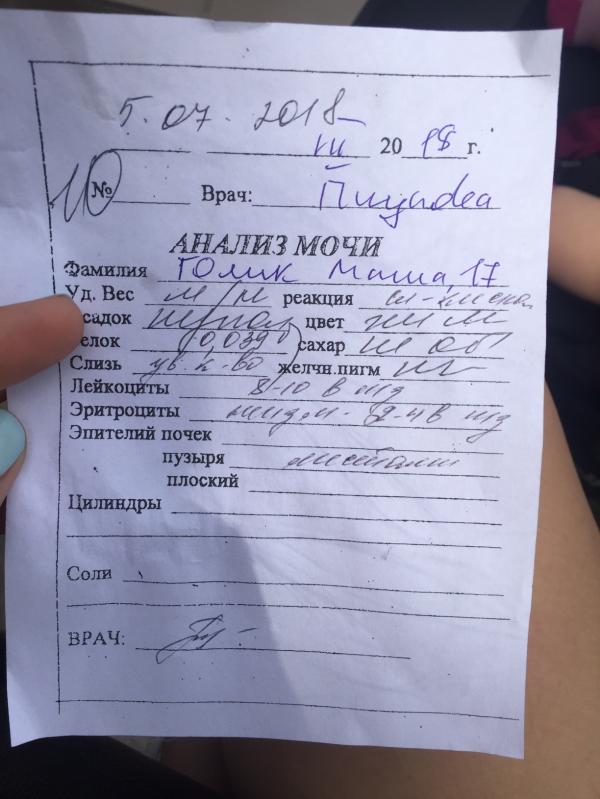 5.07.2018
VII 20 18 г.
№ Врач:
АНАЛИЗ МОЧИ
Фамилия Голик Маша, 17
Уд. Вес м/м реакция
садок цвет
елок 0,039 сахар не об
Слизь ув. к-во желчн.пигм
Лейкоциты 8-10 в п/з
Эритроциты 2-4 в п/з
Эпителий почек
пузыря местами
плоский
Цилиндры
Соли
ВРАЧ: